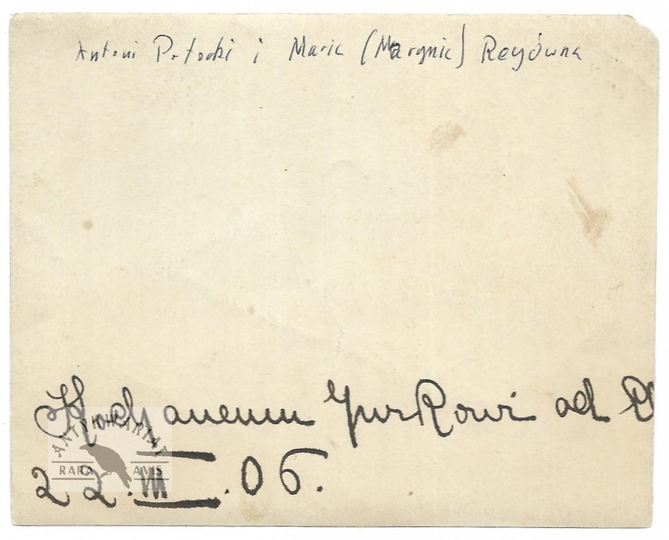 Antoni Potocki i Maria (Marynia) Reyówna
Kochanemu Jurkowi od
22.III.06.
ANTYKWARIAT
RARA AVIS